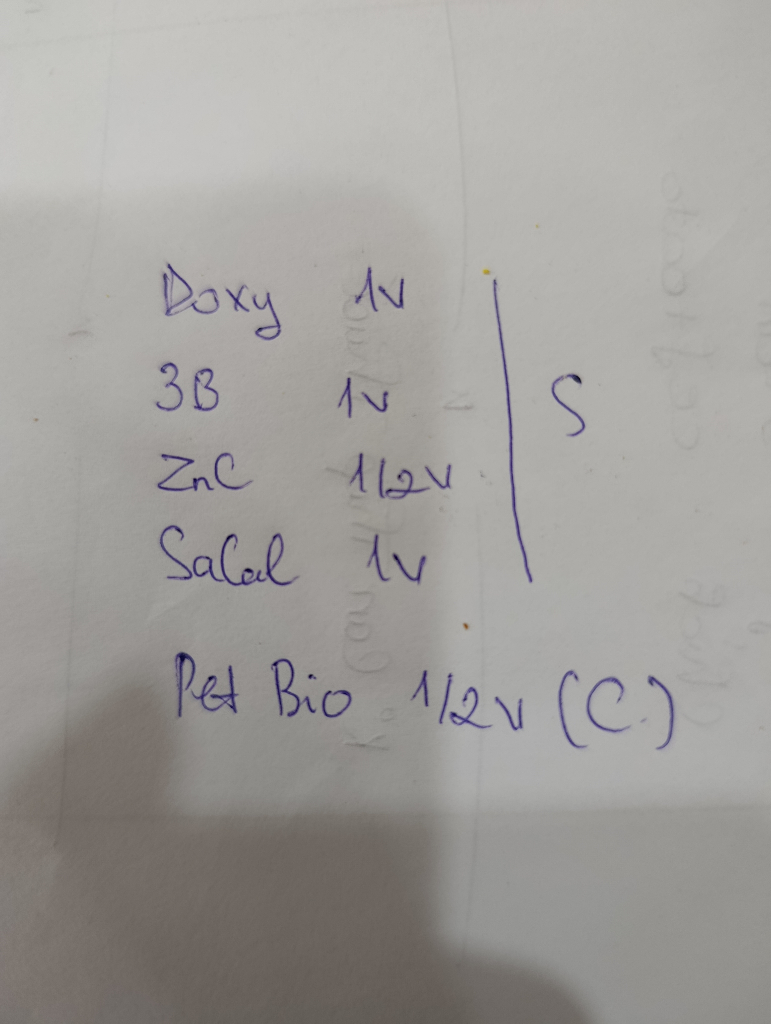 Doxy 1v
3B 1v
ZnC 1/2v
S
SaCal 1v
Pet Bio 1/2v (C)